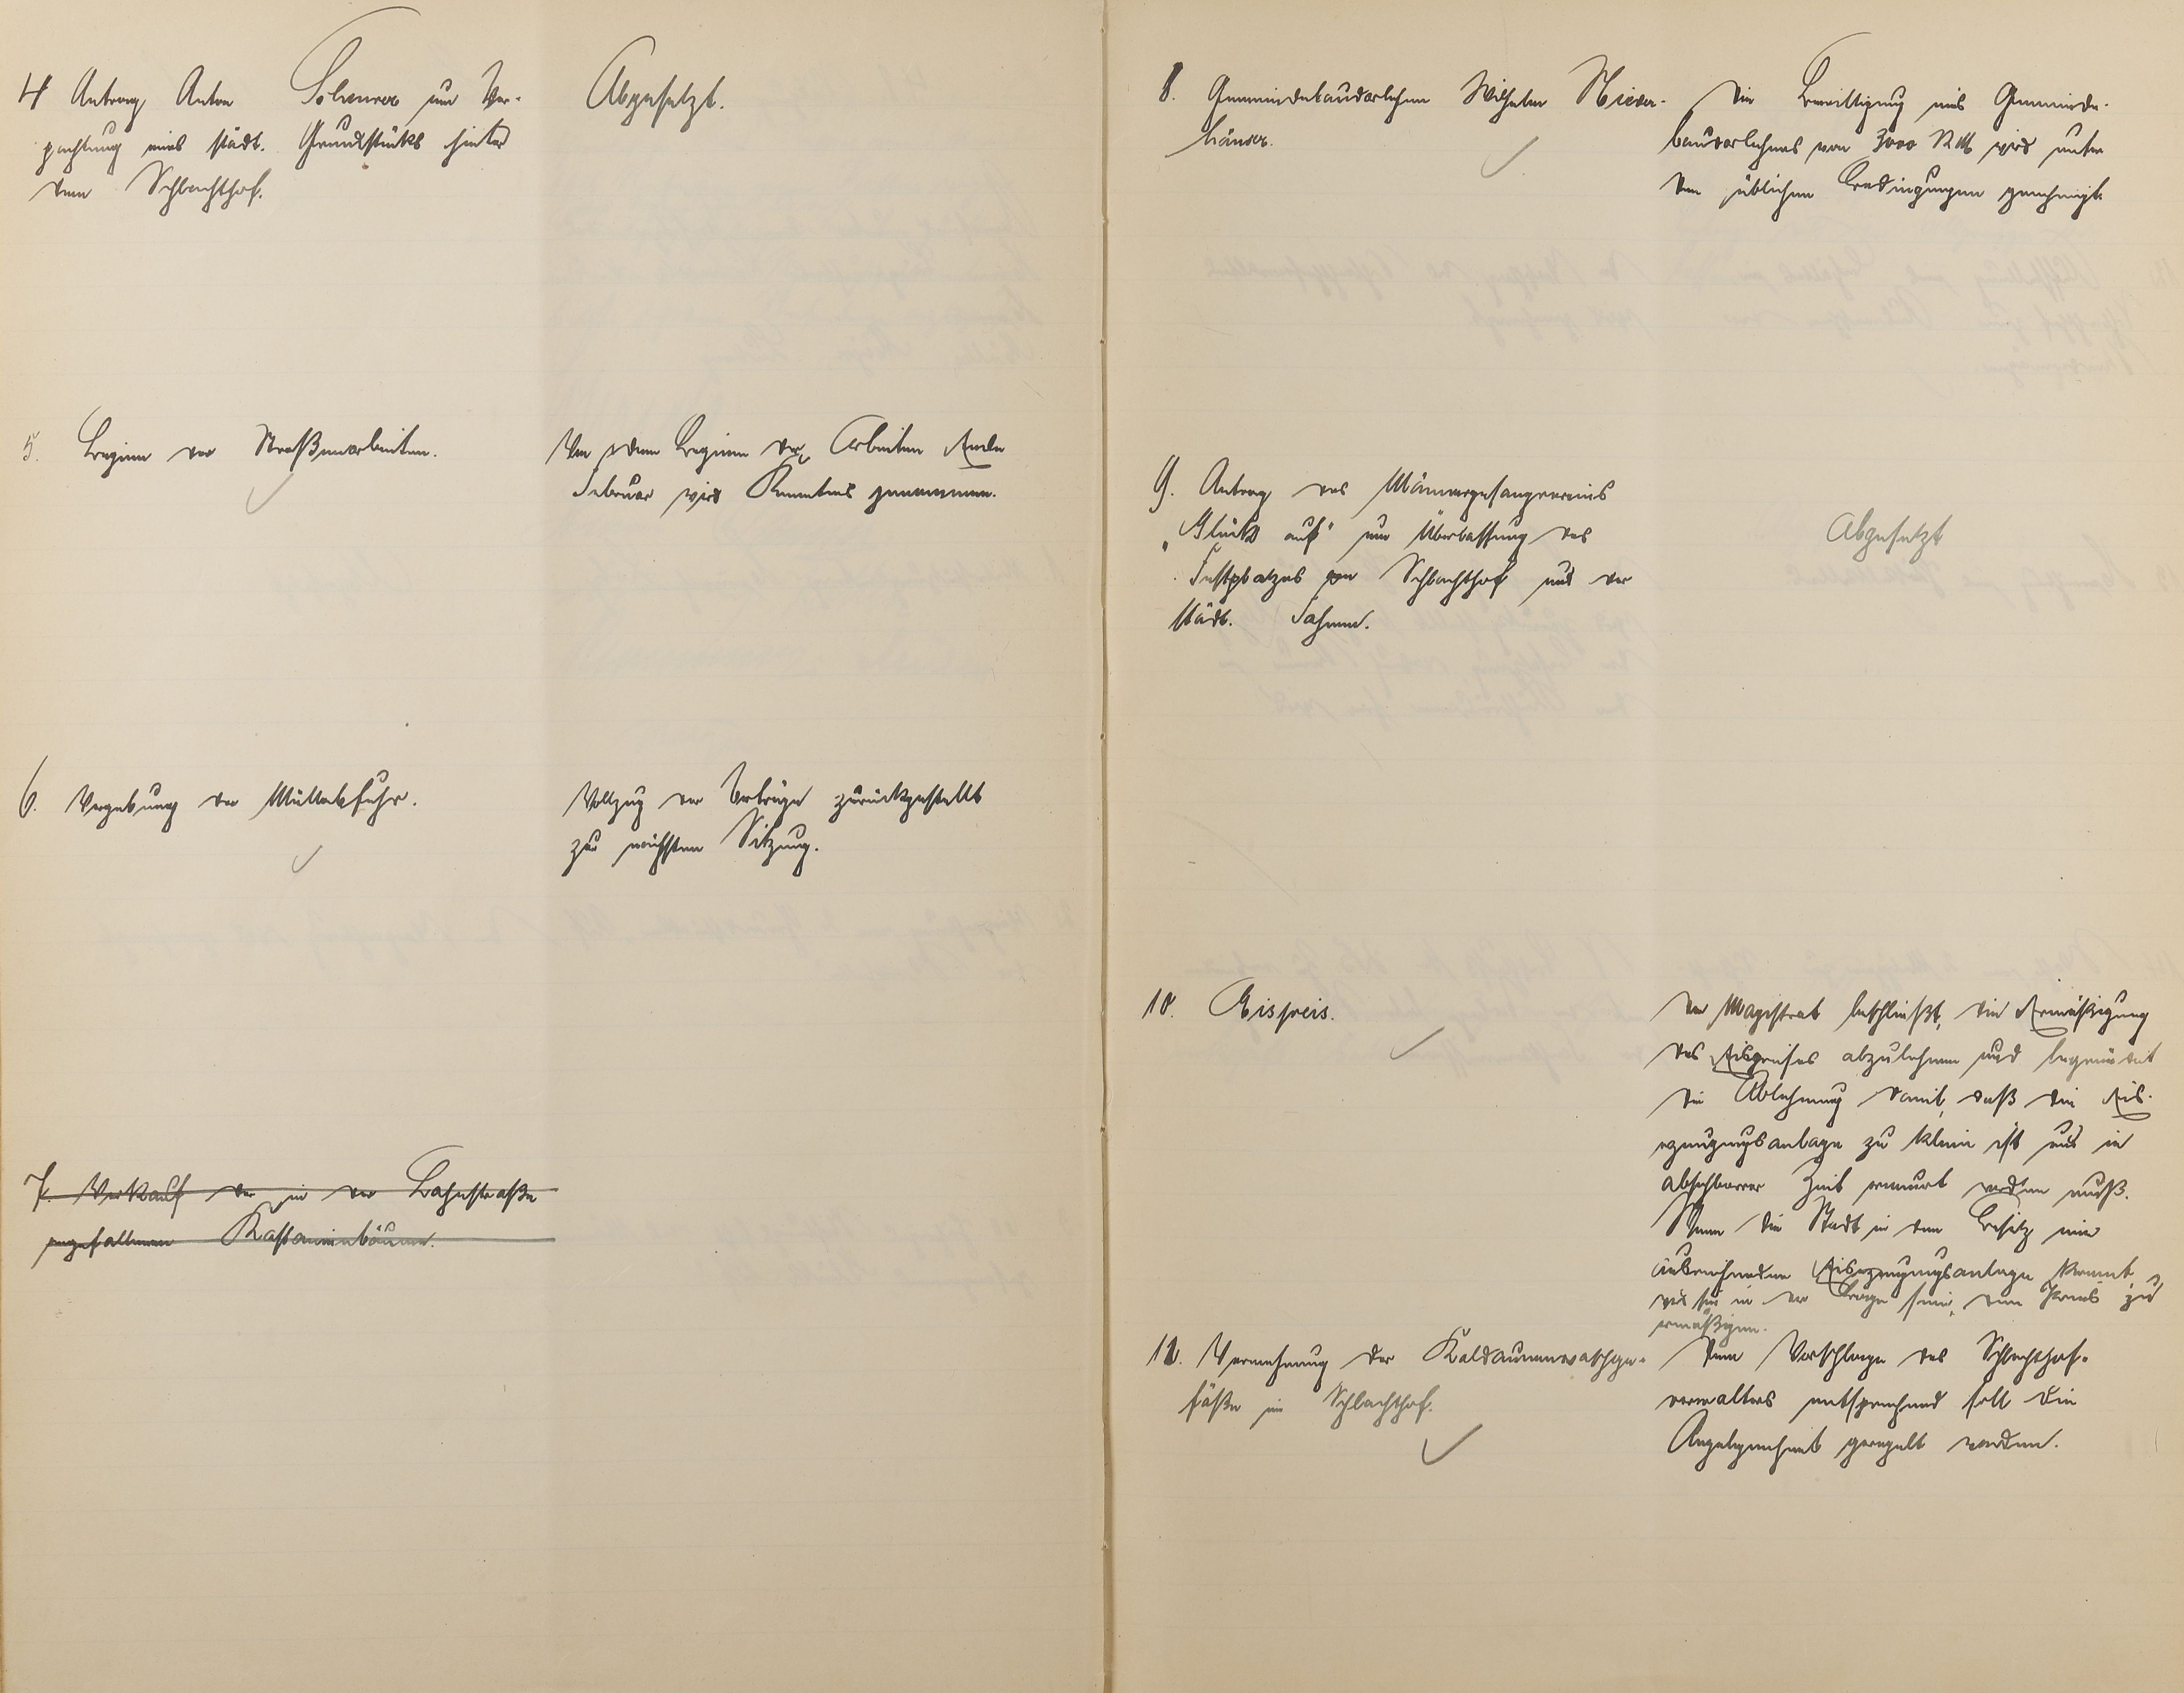 4 Antrag Anton Scheurer um Ver-
pachtung eines städt. Grundstücks hinter
dem Schlachthof.
Abgesetzt.
5. Beginn der Straßenarbeiten.
Von dem Beginn der Arbeiten Ende
Februar wird Kenntnis genommen.
6. Vergebung der Müllabfuhr.
Vollzug der Verträge zurückgestellt
zur nächsten Sitzung.
7. Verkauf der in der Bahnstraße
angefallenen Kastanienbäume.
8. Gemeindebaudarlehen Wilhelm Nieder-
häuser.
Die Bewilligung eines Gemeinde-
baudarlehens von 3000 RM wird unter
den üblichen Bedingungen genehmigt.
9. Antrag des Männergesangvereins
„Glück auf" um Überlassung des
Festplatzes am Schlachthof und der
städt. Fahnen.
Abgesetzt
10. Eispreis.
Der Magistrat beschließt, die Ermäßigung
des Eispreises abzulehnen und begründet
die Ablehnung damit, daß die Eis-
erzeugungsanlage zu klein ist und in
absehbarer Zeit erneuert werden muß.
Wenn die Stadt in den Besitz einer
ausreichenden Eiserzeugungsanlage kommt,
wird sie in der Lage sein, den Preis zu
ermäßigen.
11. Vermehrung der Kaldaunenwaschge-
fäße im Schlachthof.
Dem Vorschlage des Schlachthof-
verwalters entsprechend soll die
Angelegenheit geregelt werden.